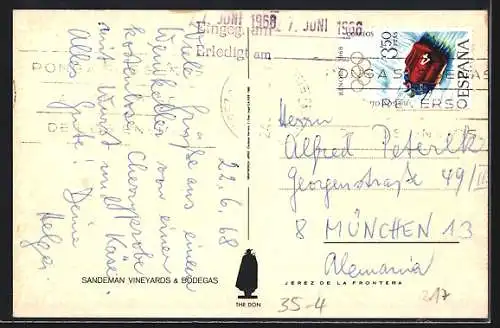 7. JUNI 1968
7. JUNI 1968
Eingeg. am
Erledigt am
CORREOS
3,50
PTAS
ESPAÑA
22.6.68
Viele Grüße aus einem
Weinkeller von einer
kostenlose Cherryprobe
mit Wurst und Käse.
Alles Gute! Deine
Helga
SANDEMAN VINEYARDS & BODEGAS
THE DON
Herrn
Alfred Peterlik
Georgenstraße 49/II
8 MÜNCHEN 13
Alemania
JEREZ DE LA FRONTERA
35-4
217